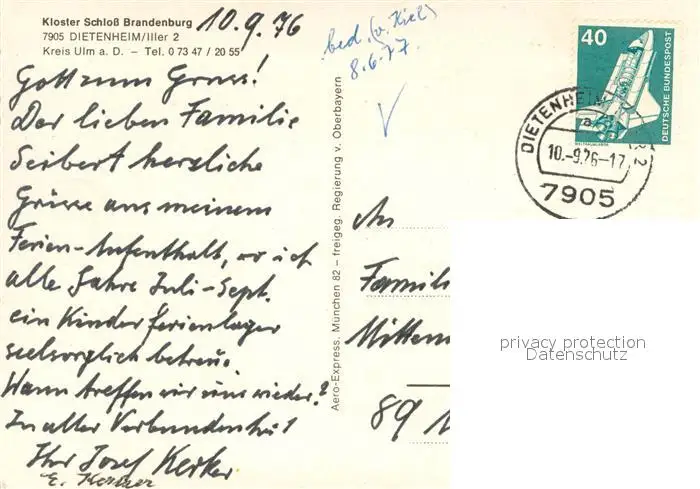 Kloster Schloß Brandenburg
7905 DIETENHEIM/Iller 2
Kreis Ulm a. D. – Tel. 0 73 47 / 20 55
10.9.76
Gott zum Gruss!
Der lieben Familie
Seibert herzliche
Grüsse aus meinem
Ferien-Aufenthalt, wo ich
alle Jahre Juli-Sept.
ein Kinderferienlager
seelsorglich betreue.
Wann treffen wir uns wieder?
In alter Verbundenheit
Ihr Josef Kerker
bed. (v. Kiel)
8.6.77.
Aero-Express, München 82 – freigeg. Regierung v. Oberbayern
40
DEUTSCHE BUNDESPOST
DIETENHEIM
a
10.-9.76-17
7905
An
Famil
Mitten
89
privacy protection
Datenschutz